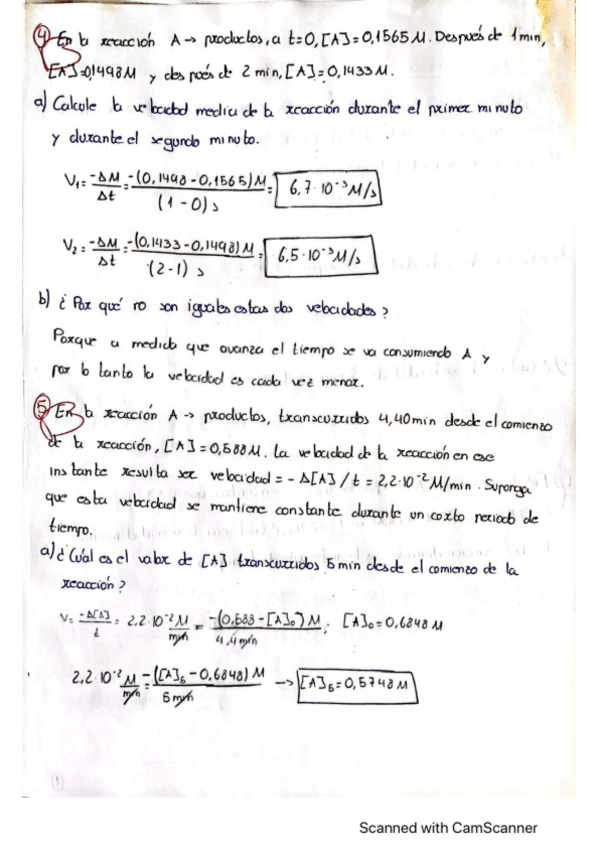 ④ En la reacción A → productos, a t=0, [A]=0,1565 M. Después de 1 min,
[A]=0,1498M y después de 2 min, [A]=0,1433M.
a) Calcule la velocidad media de la reacción durante el primer minuto
y durante el segundo minuto.
V₁ = -ΔM/Δt = -(0,1498-0,1565)M/(1-0) s = 6,7·10⁻³ M/s
V₂ = -ΔM/Δt = -(0,1433-0,1498)M/(2-1) s = 6,5·10⁻³ M/s
b) ¿Por qué no son iguales estas dos velocidades?
Porque a medida que avanza el tiempo se va consumiendo A y
por lo tanto la velocidad es cada vez menor.
⑤ En la reacción A → productos, transcurridos 4,40 min desde el comienzo
de la reacción, [A]=0,588M. La velocidad de la reacción en ese
instante resulta ser velocidad = -Δ[A]/t = 2,2·10⁻² M/min. Suponga
que esta velocidad se mantiene constante durante un corto periodo de
tiempo.
a) ¿Cuál es el valor de [A] transcurridos 5 min desde el comienzo de la
reacción?
V = -Δ[A]/t = 2,2·10⁻² M/min = -(0,588-[A]₀)M/4,4min ; [A]₀=0,6848 M
2,2·10⁻² M/min = -([A]₅-0,6848)M/5 min → [A]₅=0,5748M
Scanned with CamScanner